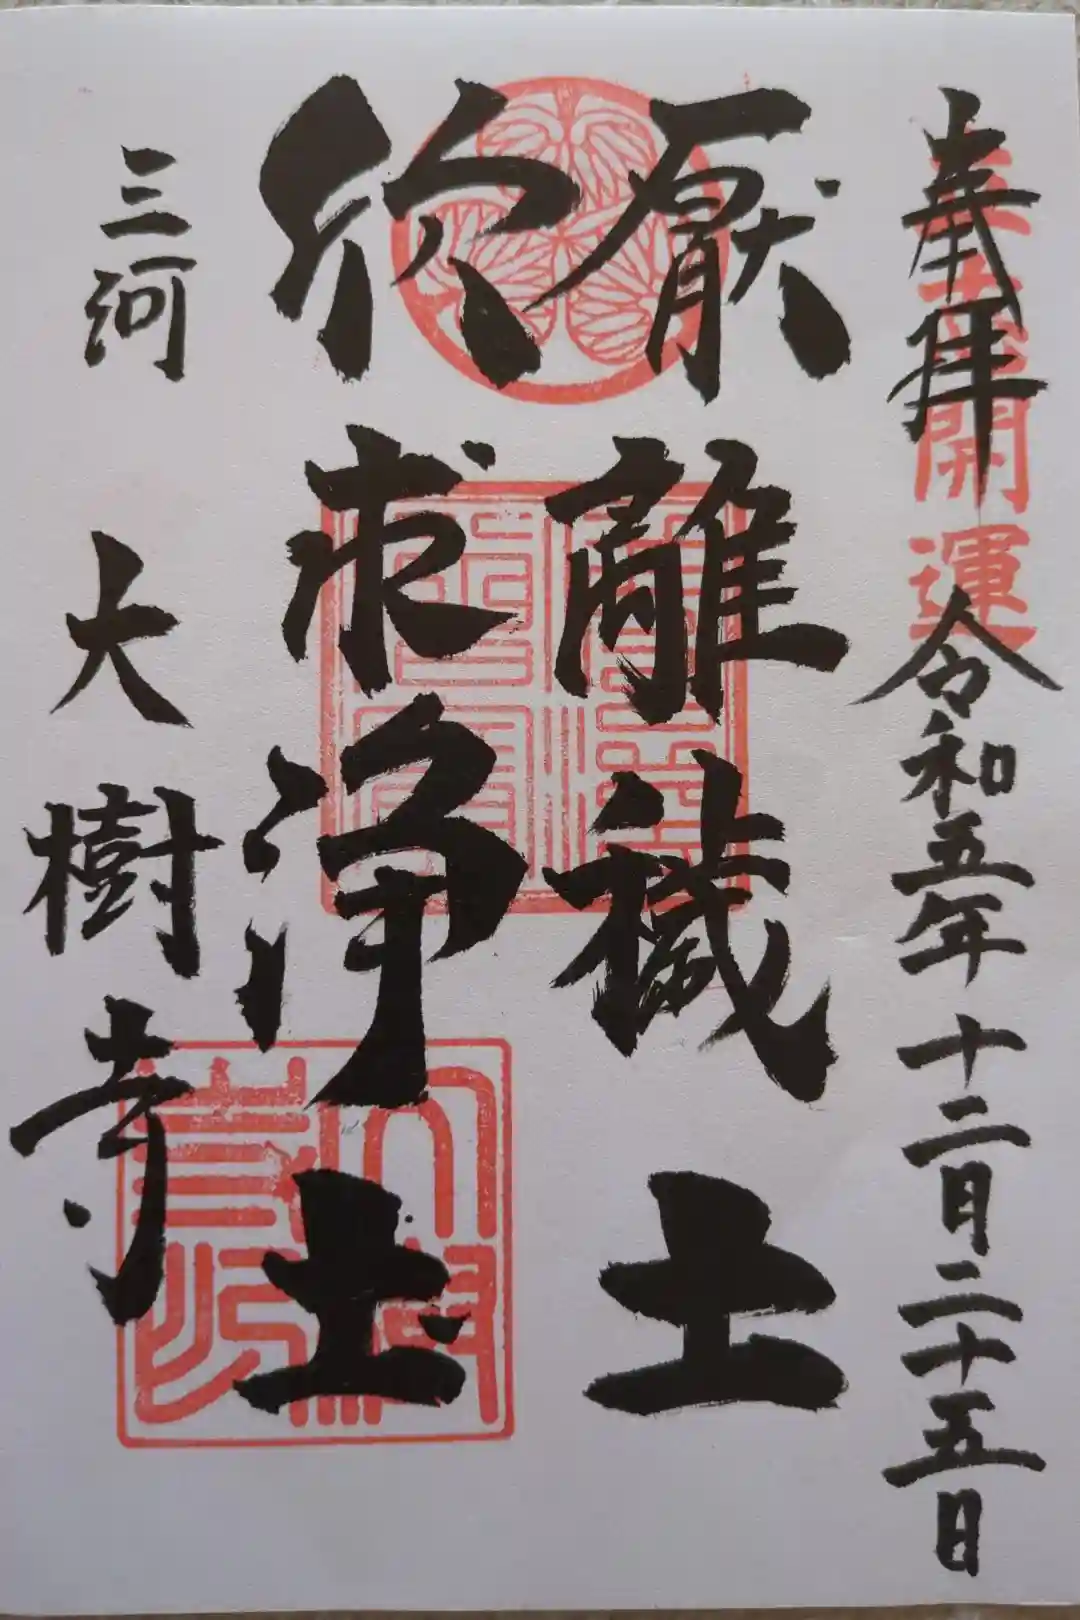 奉拝
開運
令和五年十二月二十五日
厭離穢土
欣求浄土
三河
大樹寺